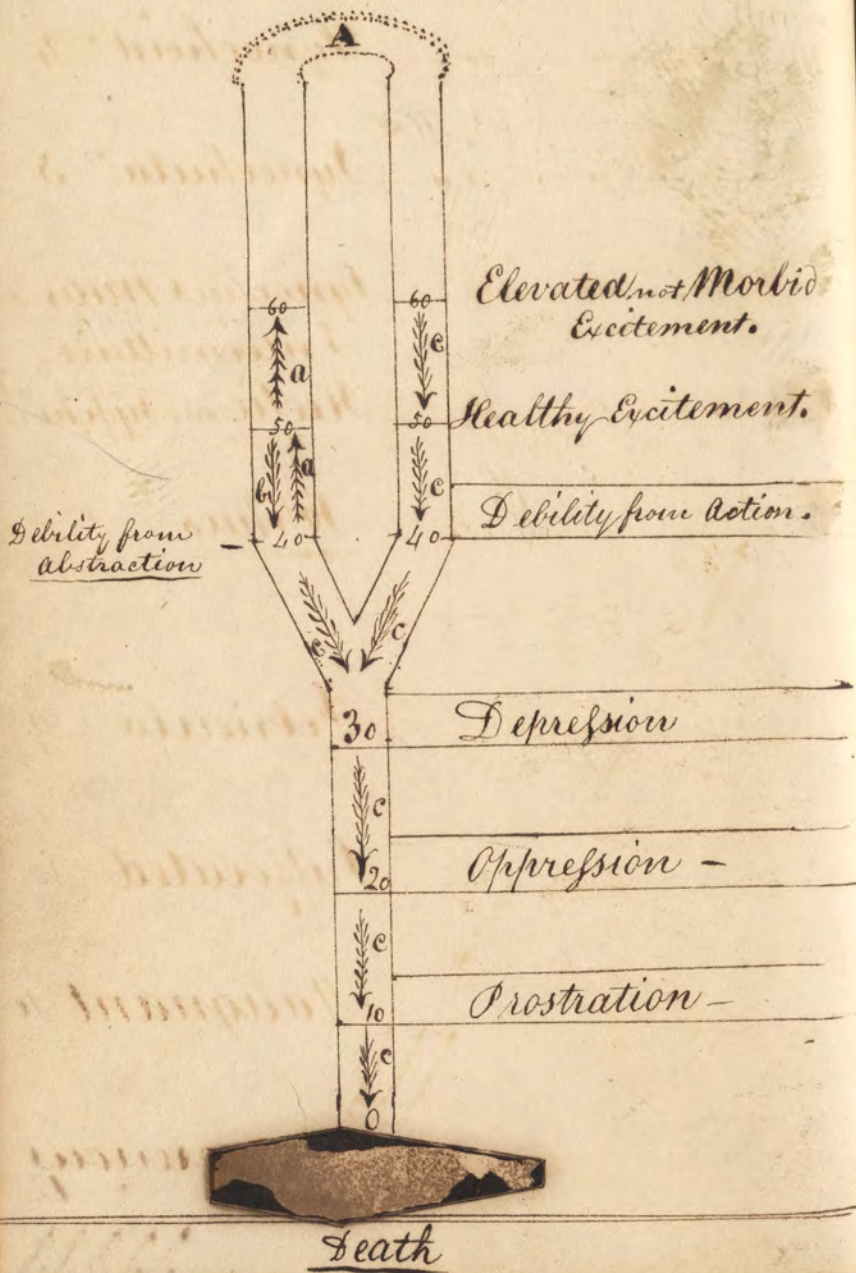 A
60 60
Elevated not Morbid
Excitement.
a e
50 50
Healthy Excitement.
b a e
Debility from Action.
40 40
Debility from
Abstraction
e c
30
Depreſsion
c
20
Oppreſsion -
e
10
Prostration -
e
0
Death